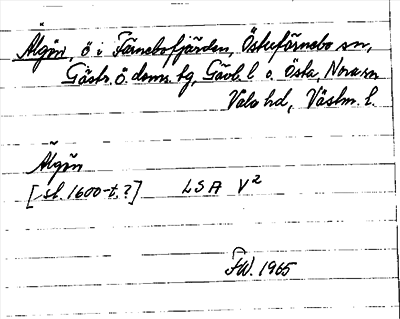 Älgön, ö i Färnebofjärden, Österfärnebo sn,
Gästr. ö. doms. tg, Gävl. l o. Östa, Nora sn
Vala hd, Västm. l.
Älgön
[sl. 1600-t.?] LSA V²
FW. 1965